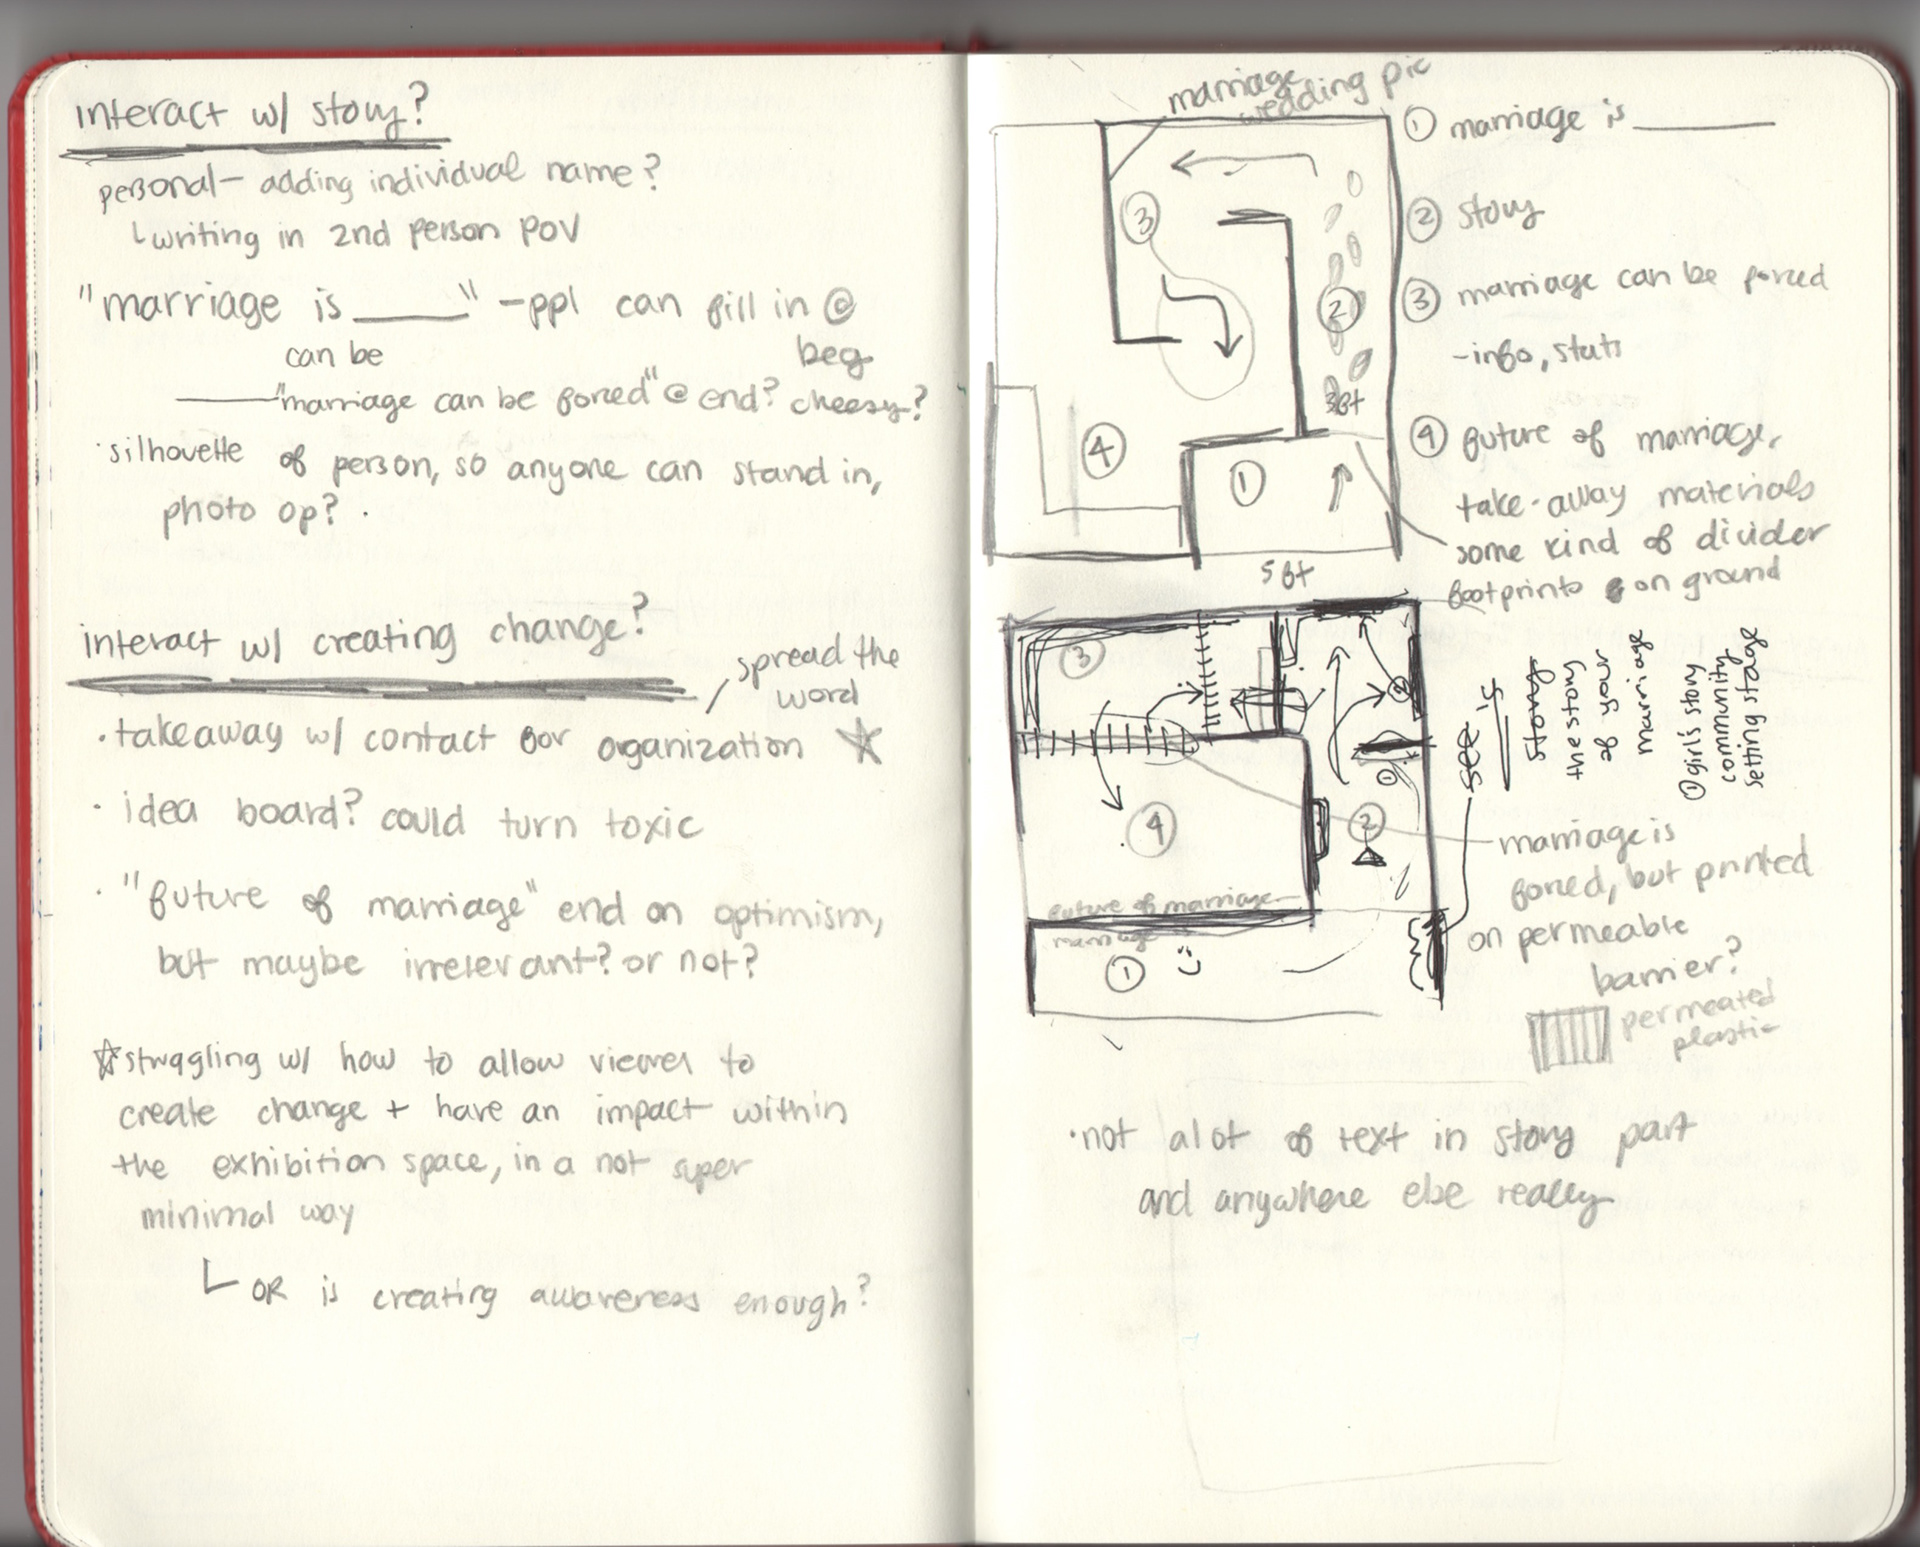 interact w/ story?
personal - adding individual name?
writing in 2nd person POV
"marriage is ____" - ppl can fill in @
beg
can be
____ "marriage can be forced" @ end? cheesy?
· silhouette of person, so anyone can stand in,
photo op?.
interact w/ creating change?
spread the
word
· takeaway w/ contact for organization
· idea board? could turn toxic
· "future of marriage" end on optimism,
but maybe irrelevant? or not?
struggling w/ how to allow viewer to
create change + have an impact within
the exhibition space, in a not super
minimal way
OR is creating awareness enough?
marriage
wedding pic
3
2
3ft
4
1
5ft
① marriage is ____
② story
③ marriage can be forced
- info, stats
④ future of marriage,
take-away materials
some kind of divider
footprints on ground
3
2
1
4
2
future of marriage
marriage
1
see
story
the story
of your
marriage
① girl's story
community
setting stage
marriage is
forced, but printed
on permeable
barrier?
permeated
plastic
· not alot of text in story part
and anywhere else really